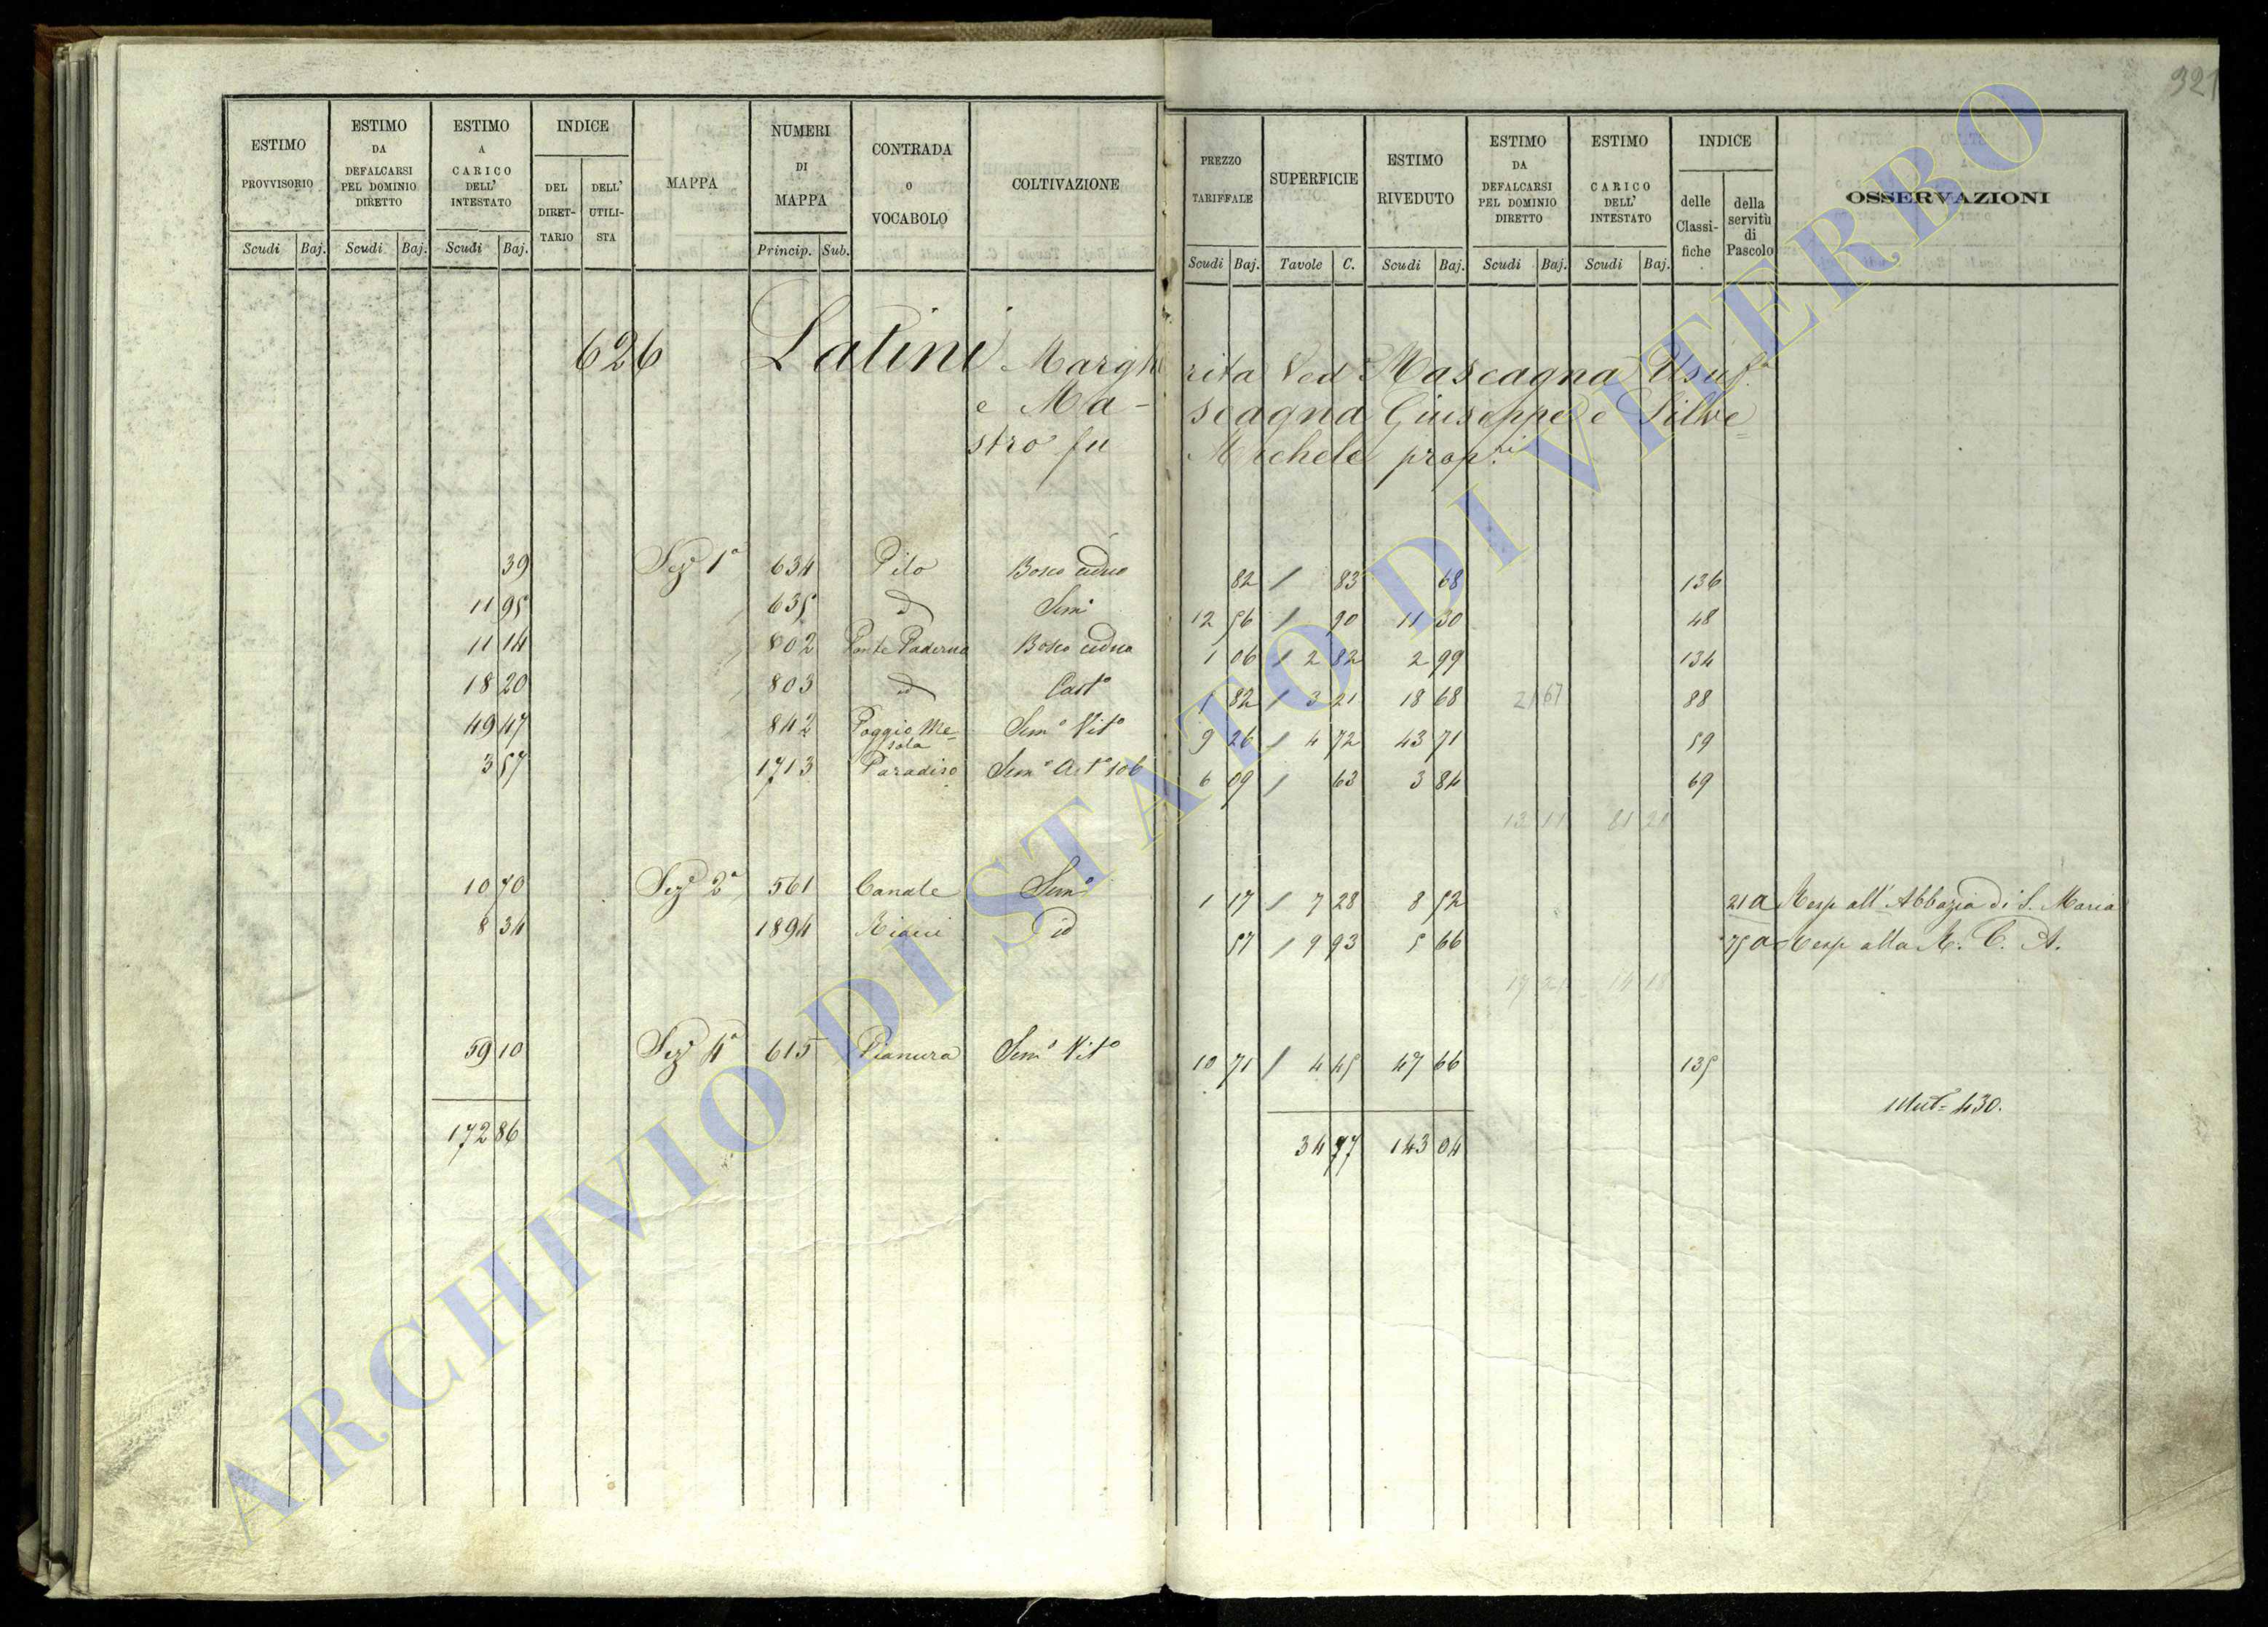 321
ESTIMO PROVVISORIO Scudi Baj.
ESTIMO DA DEFALCARSI PEL DOMINIO DIRETTO Scudi Baj.
ESTIMO A CARICO DELL' INTESTATO Scudi Baj.
INDICE DEL DIRET-TARIO DELL' UTILI-STA
MAPPA
NUMERI DI MAPPA Princip. Sub.
CONTRADA O VOCABOLO
COLTIVAZIONE
PREZZO TARIFFALE Scudi Baj.
SUPERFICIE Tavole C.
ESTIMO RIVEDUTO Scudi Baj.
ESTIMO DA DEFALCARSI PEL DOMINIO DIRETTO Scudi Baj.
ESTIMO CARICO DELL' INTESTATO Scudi Baj.
INDICE delle Classi-fiche della servitù di Pascolo
OSSERVAZIONI
626 Latini Marghe rita Ved.ª Mascagna Usuf.ª
e Ma- scagna Giuseppe e Silve=
stro fu Michele prop.ri
39 Sez.e 1ª 634 Pilo Bosco ceduo 82 / 83 68 136
11 95 635 id Sem.o 12 56 / 90 11 30 48
11 14 802 Ponte Paderno Bosco ceduo 1 06 / 2 82 2 99 134
18 20 803 id Cast.o 82 / 3 21 18 68 21 67 88
49 47 842 Poggio Me=sola Sem.o Vit.o 9 26 / 4 72 43 71 59
3 57 1713 Paradiso Sem.o 6 09 / 63 3 84 69
10 70 Sez.e 2ª 561 Canale Sem.o 1 17 / 7 28 8 52 21 a Resp all' Abbazia di S. Maria
8 34 1894 id 57 / 9 93 5 66 75 a Resp alla R. C. A.
59 10 Sez.e 4ª 615 Pianura Sem.o Vit.o 10 71 / 4 45 47 66 135
Mut= 430.
172 86 34 77 143 04
ARCHIVIO DI STATO DI VITERBO